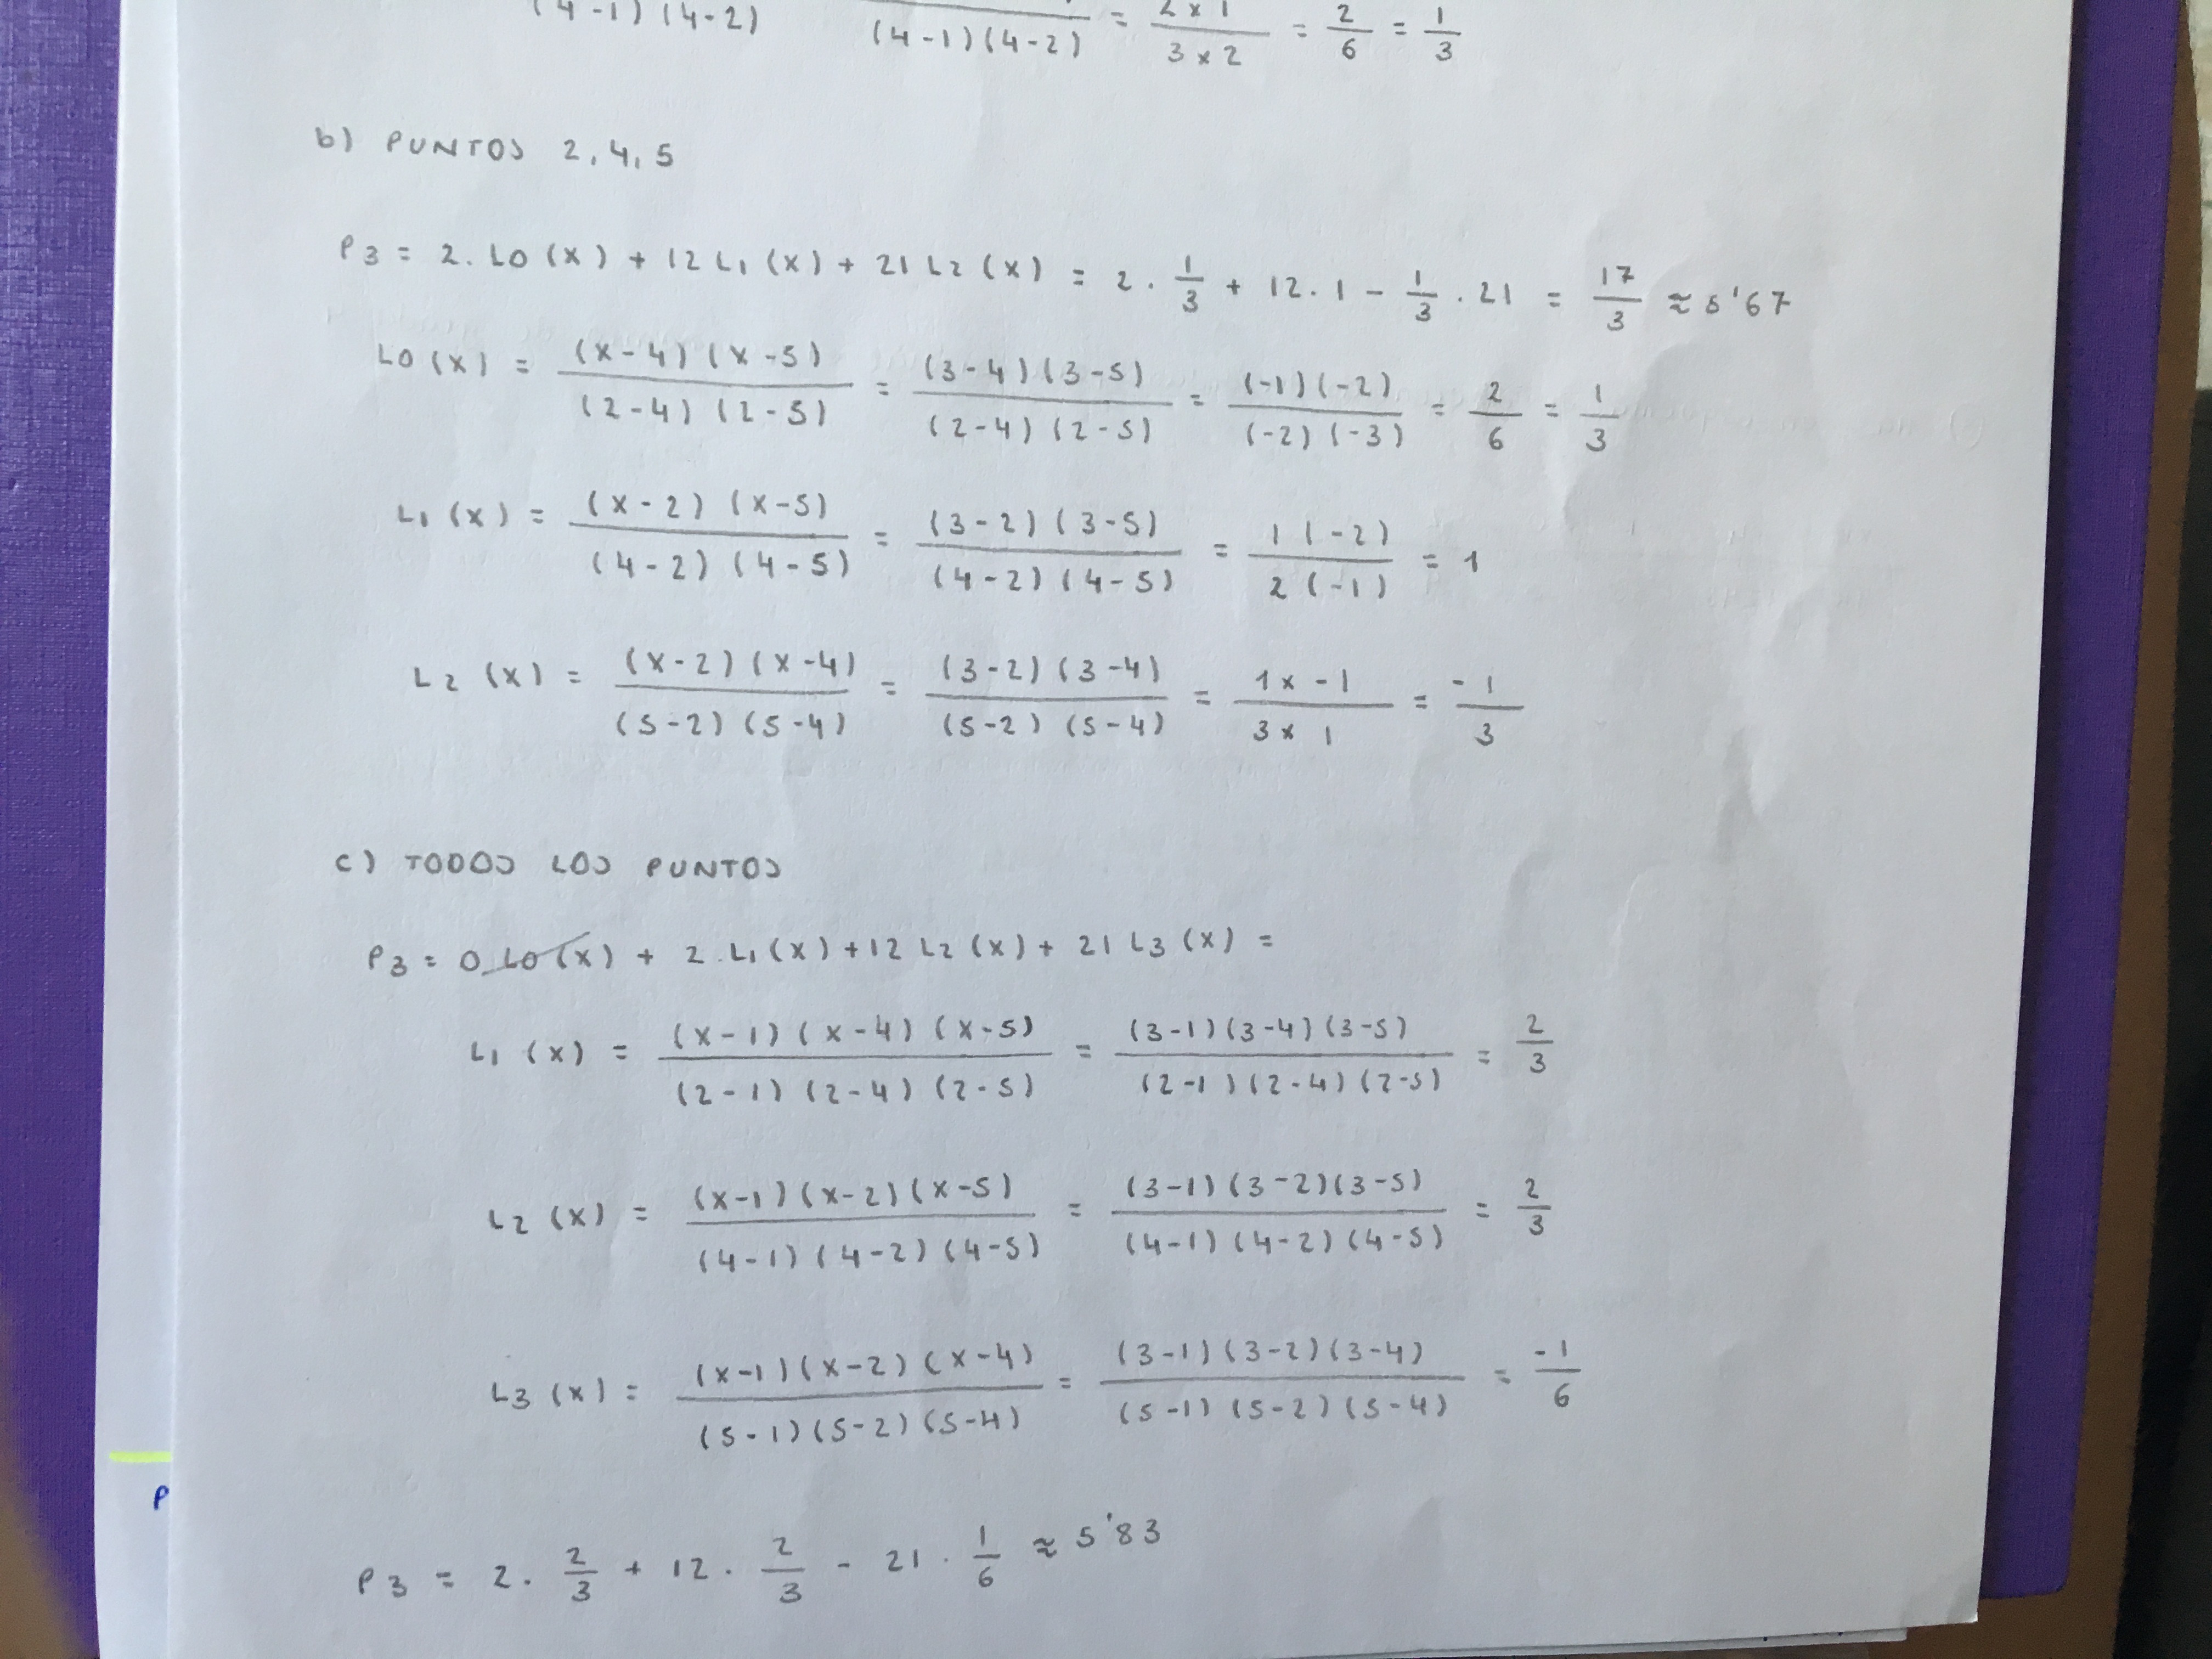 (4-1)(4-2) (4-1)(4-2) = 2x1/3x2 = 2/6 = 1/3
b) PUNTOS 2,4,5
P3 = 2.L0(x) + 12L1(x) + 21L2(x) = 2 . 1/3 + 12.1 - 1/3 . 21 = 17/3 ≈ 5'67
L0(x) = (x-4)(x-5)/(2-4)(2-5) = (3-4)(3-5)/(2-4)(2-5) = (-1)(-2)/(-2)(-3) = 2/6 = 1/3
L1(x) = (x-2)(x-5)/(4-2)(4-5) = (3-2)(3-5)/(4-2)(4-5) = 1(-2)/2(-1) = 1
L2(x) = (x-2)(x-4)/(5-2)(5-4) = (3-2)(3-4)/(5-2)(5-4) = 1x-1/3x1 = -1/3
c) TODOS LOS PUNTOS
P3 = 0.L0(x) + 2.L1(x) + 12L2(x) + 21L3(x) =
L1(x) = (x-1)(x-4)(x-5)/(2-1)(2-4)(2-5) = (3-1)(3-4)(3-5)/(2-1)(2-4)(2-5) = 2/3
L2(x) = (x-1)(x-2)(x-5)/(4-1)(4-2)(4-5) = (3-1)(3-2)(3-5)/(4-1)(4-2)(4-5) = 2/3
L3(x) = (x-1)(x-2)(x-4)/(5-1)(5-2)(5-4) = (3-1)(3-2)(3-4)/(5-1)(5-2)(5-4) = -1/6
P
P3 = 2 . 2/3 + 12 . 2/3 - 21 . 1/6 ≈ 5'83